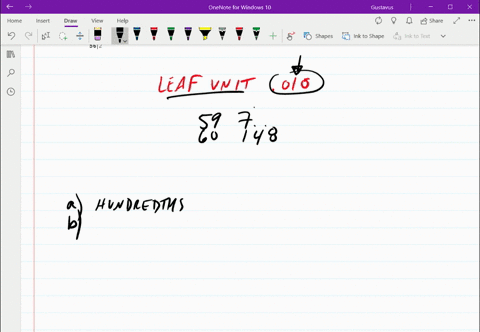 OneNote for Windows 10
Gustavus
Home Insert Draw View Help
Share
Shapes Ink to Shape Ink to Text
LEAF UNIT .010
59 7
60 1 4 8
a) HUNDREDTHS
b)